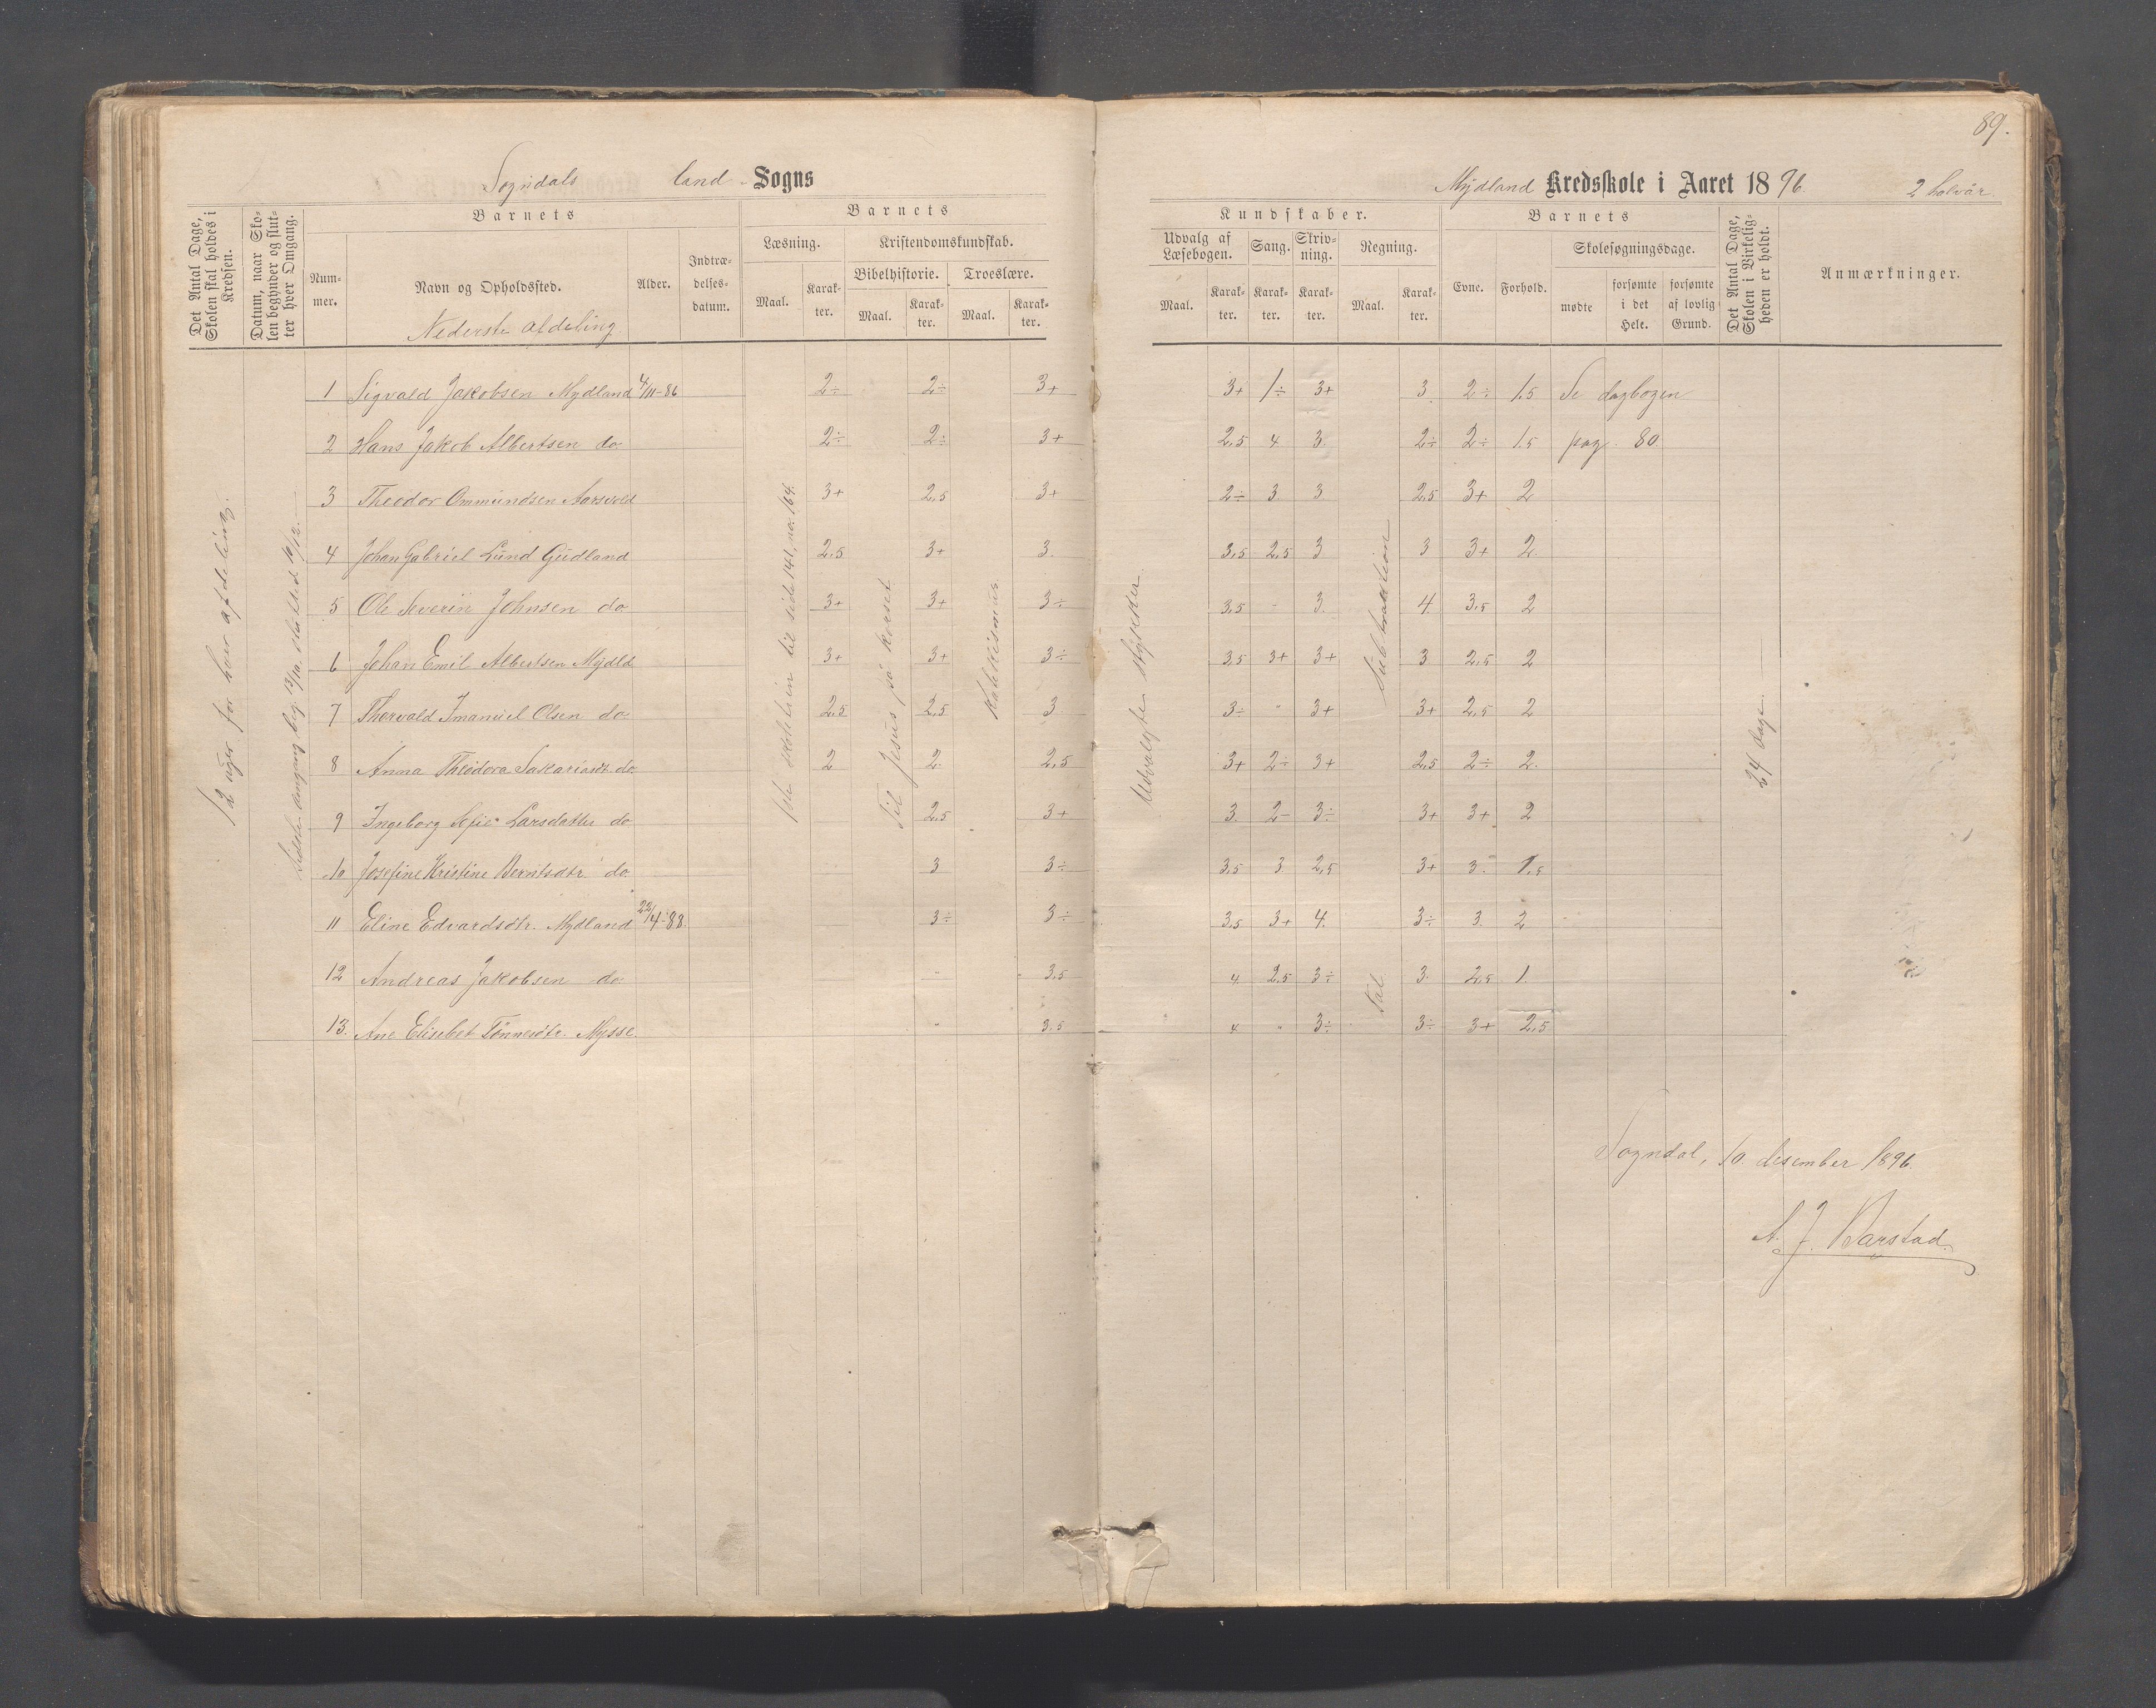 89.
Sogndals land Sogns
Mydland Kredsskole i Aaret 1896. 2 halvår
Det Antal Dage, Skolen skal holdes i Kredsen.
Datum, naar Skolen begynder og slutter hver Omgang.
Barnets
Nummer.
Navn og Opholdssted.
Nederste afdeling
Alder.
Indtrædelsesdatum.
Barnets
Læsning.
Maal.
Karakter.
Kristendomskundskab.
Bibelhistorie.
Maal.
Karakter.
Troeslære.
Maal.
Karakter.
Kundskaber.
Udvalg af Læsebogen.
Maal.
Karakter.
Sang.
Karakter.
Skrivning.
Karakter.
Regning.
Maal.
Karakter.
Barnets
Evne.
Forhold.
Skolesøgningsdage.
mødte
forsømte i det Hele.
forsømte af lovlig Grund.
Det Antal Dage, Skolen i Virkeligheden er holdt.
Anmærkninger.
12 uger for hver afdeling.
Sidste omgang beg. 13/10. sluttet 10/12.
til side 141, no. 164.
Til Jesus på korset
Katekismus
Udvalgte stykker
Subtraktion
Tal
24 dage.
1 Sigvald Jakobsen Mydland 4/11-86 2÷ 2÷ 3+ 3+ 1÷ 3+ 3 2÷ 1.5 Se dagbogen
2 Hans Jakob Albertsen do 2÷ 2÷ 3+ 2,5 4 3 2÷ 2÷ 1.5 pag. 80
3 Theodor Ommundsen Aarsvold 3+ 2,5 3+ 2÷ 3 3 2,5 3+ 2
4 Johan Gabriel Lund Gudland 2,5 3+ 3. 3,5 2,5 3 3 3+ 2
5 Ole Severin Johnsen do 3+ 3+ 3÷ 3,5 - 3. 4. 3,5 2
6 Johan Emil Albertsen Mydld 3+ 3+ 3÷ 3,5 3+ 3+ 3 2,5 2
7 Thorvald Imanuel Olsen do 2,5 2,5 3 3÷ " 3+ 3+ 2,5 2
8 Anna Theodora Sakariasdt. do 2 2. 2,5 3+ 2÷ 3+ 2,5 2÷ 2.
9 Ingeborg Sofie Larsdatter do 2,5 3+ 3. 2- 3÷ 3+ 3+ 2
10 Josefine Kristine Berntsdtr do 3 3÷ 3,5 3 2,5 3+ 3. 1.5
11 Eline Edvardsdtr. Mydland 22/4-88. 3÷ 3÷ 3,5 3+ 4. 3÷ 3. 2
12 Andreas Jakobsen do " 3,5 4. 2,5 3÷ 3. 2,5 1.
13. Ane Elisebet Tönnesdtr. Mysse. " 3,5 4 " 3÷ 3÷ 3+ 2,5
Sogndal, 10. desember 1896.
A. J. Barstad.